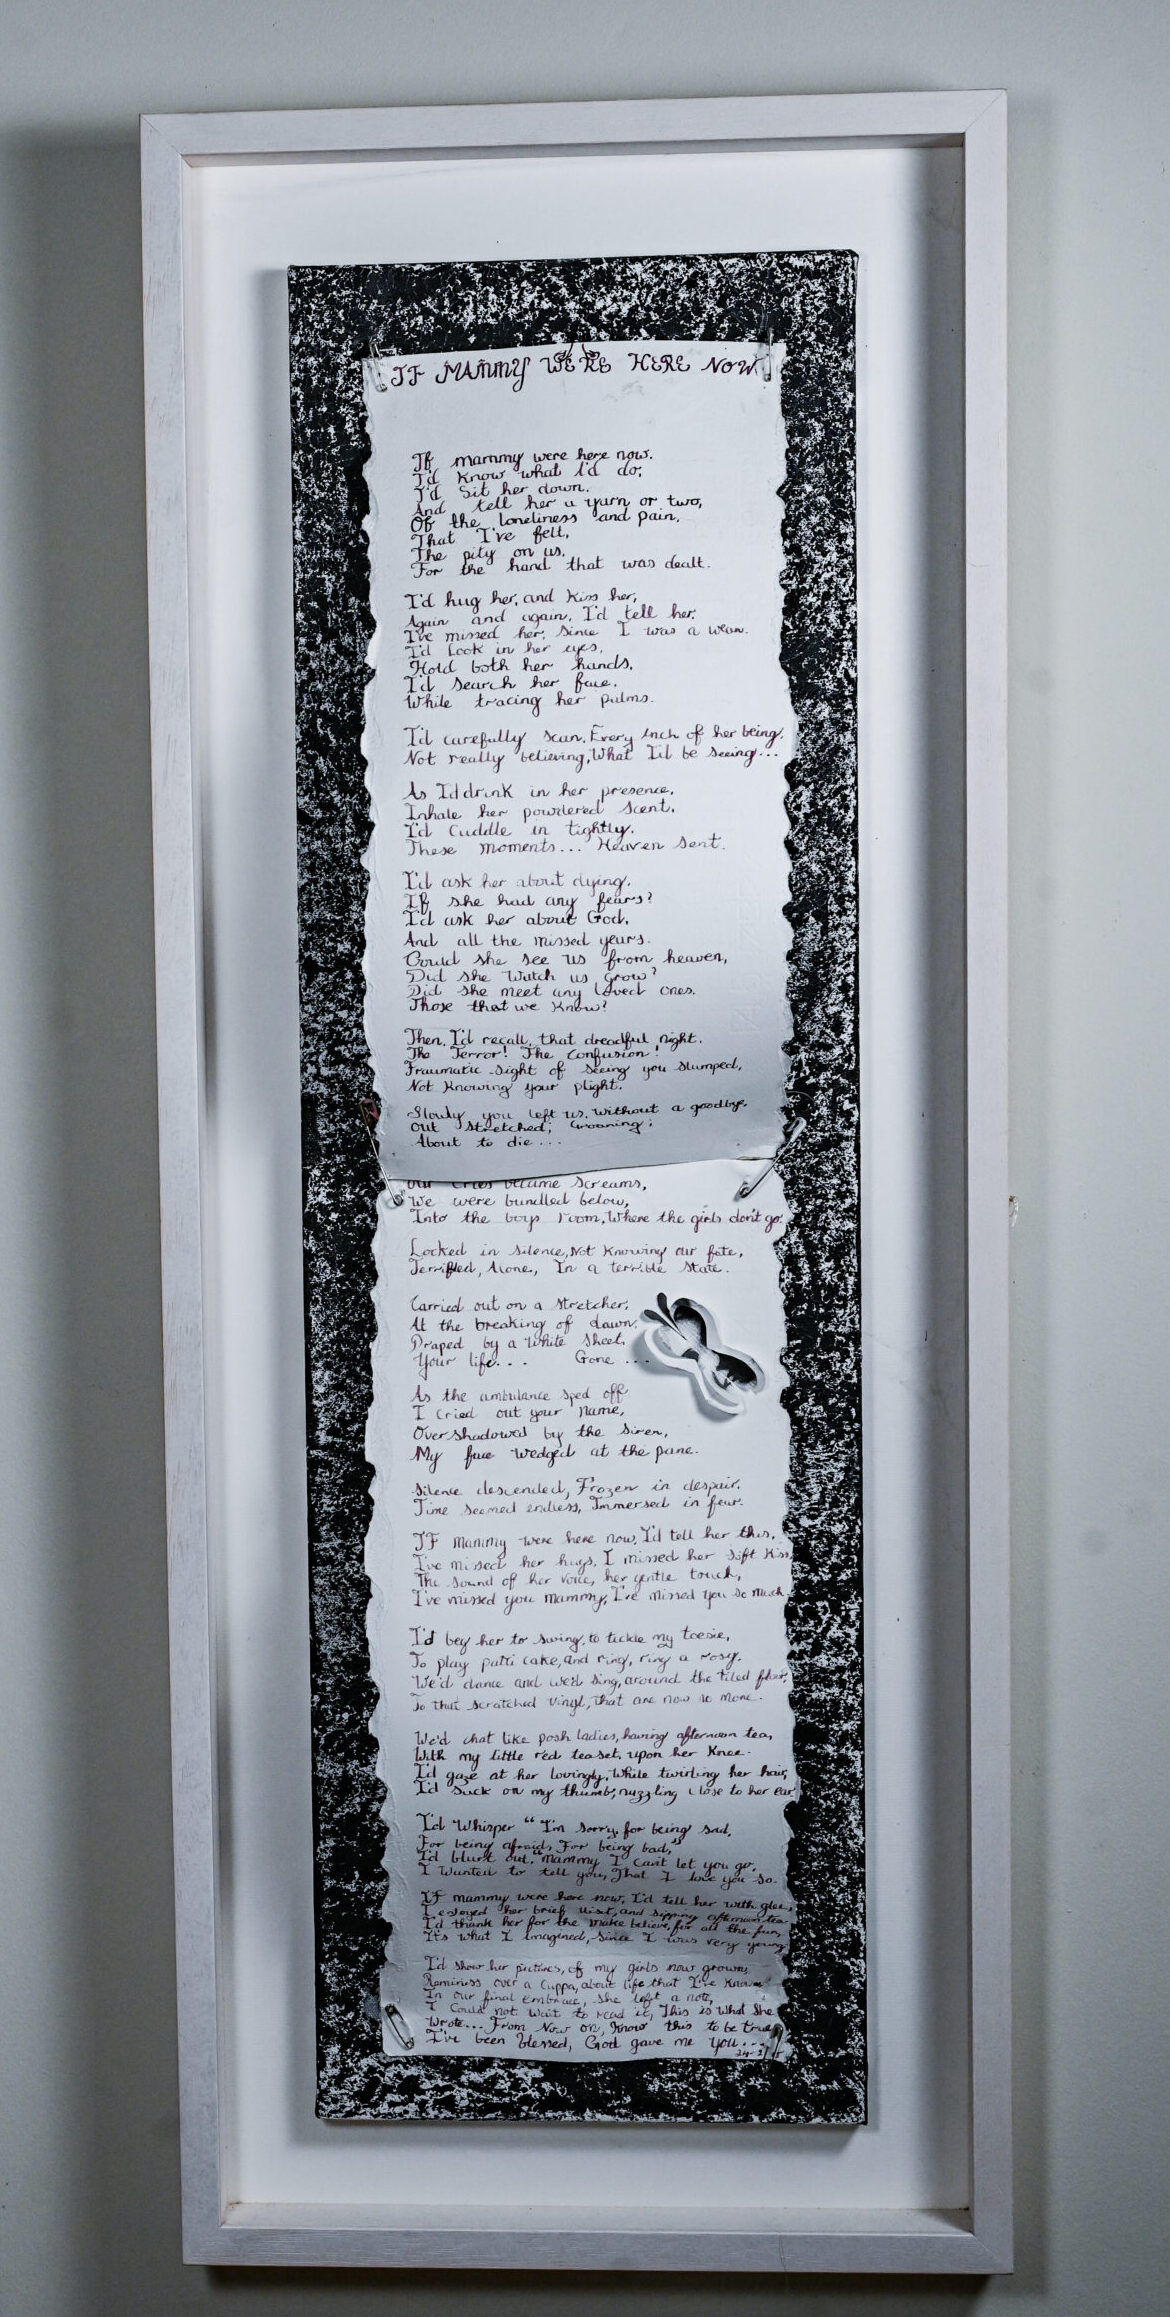 IF MAMMY WERE HERE NOW
If mammy were here now.
I'd know what I'd do;
I'd Sit her down.
And tell her a yarn or two,
Of the loneliness and pain,
That I've felt,
The pity on us,
For the hand that was dealt.
I'd hug her, and kiss her,
Again and again, I'd tell her.
I've missed her, since I was a wean.
I'd Look in her eyes,
Hold both her hands,
I'd search her face.
While tracing her palms.
I'd carefully scan, Every inch of her being.
Not really believing, What I'd be seeing...
As I'd drink in her presence,
Inhale her powdered scent.
I'd cuddle in tightly.
These moments... Heaven sent.
I'd ask her about dying.
If she had any fears?
I'd ask her about God,
And all the missed years.
Could she see us from heaven,
Did she Watch us grow?
Did she meet any Loved ones.
Those that we know?
Then, I'd recall, that dreadful night.
The Terror! The Confusion!
Traumatic sight of seeing you slumped,
Not knowing your plight.
Slowly you left us, Without a goodbye.
Out stretched; Groaning;
About to die...
Our cries became screams,
We were bundled below,
Into the boys room, Where the girls don't go.
Locked in silence, Not knowing our fate,
Terrified, Alone, In a terrible state.
Carried out on a stretcher;
At the breaking of dawn,
Draped by a White sheet,
Your life... Gone ...
As the ambulance sped off
I cried out your name,
Overshadowed by the siren,
My face wedged at the pane.
Silence descended, Frozen in despair.
Time seemed endless, Immersed in fear.
IF Mammy were here now, I'd tell her this,
I've missed her hugs, I missed her soft kiss,
The sound of her voice, her gentle touch,
I've missed you mammy, I've missed you so much.
I'd beg her to swing, to tickle my toesie,
To play patti cake, and ring, ring a rosy.
We'd dance and we'd sing, around the tiled floor,
To that scratched vinyl, that are now no more.
We'd chat like posh ladies, having afternoon tea,
With my little red teaset, upon her knee.
I'd gaze at her lovingly, While twirling her hair,
I'd suck on my thumb, nuzzling close to her ear.
I'd Whisper "I'm sorry, for being sad,
For being afraid, For being bad,"
I'd blurt out, "Mammy I can't let you go,
I Wanted to tell you, That I love you so.
If mammy were here now, I'd tell her with glee,
I enjoyed her brief visit, and sipping afternoon tea
I'd thank her for the make believe, for all the fun,
It's what I Imagined, Since I was very young
I'd show her pictures, of my girls now grown,
Reminiss over a Cuppa, about life that I've known
In our final embrace, she left a note,
I Could not Wait to read it, This is What She
Wrote... From Now on, Know this to be true,
I've been blessed, God gave me You...